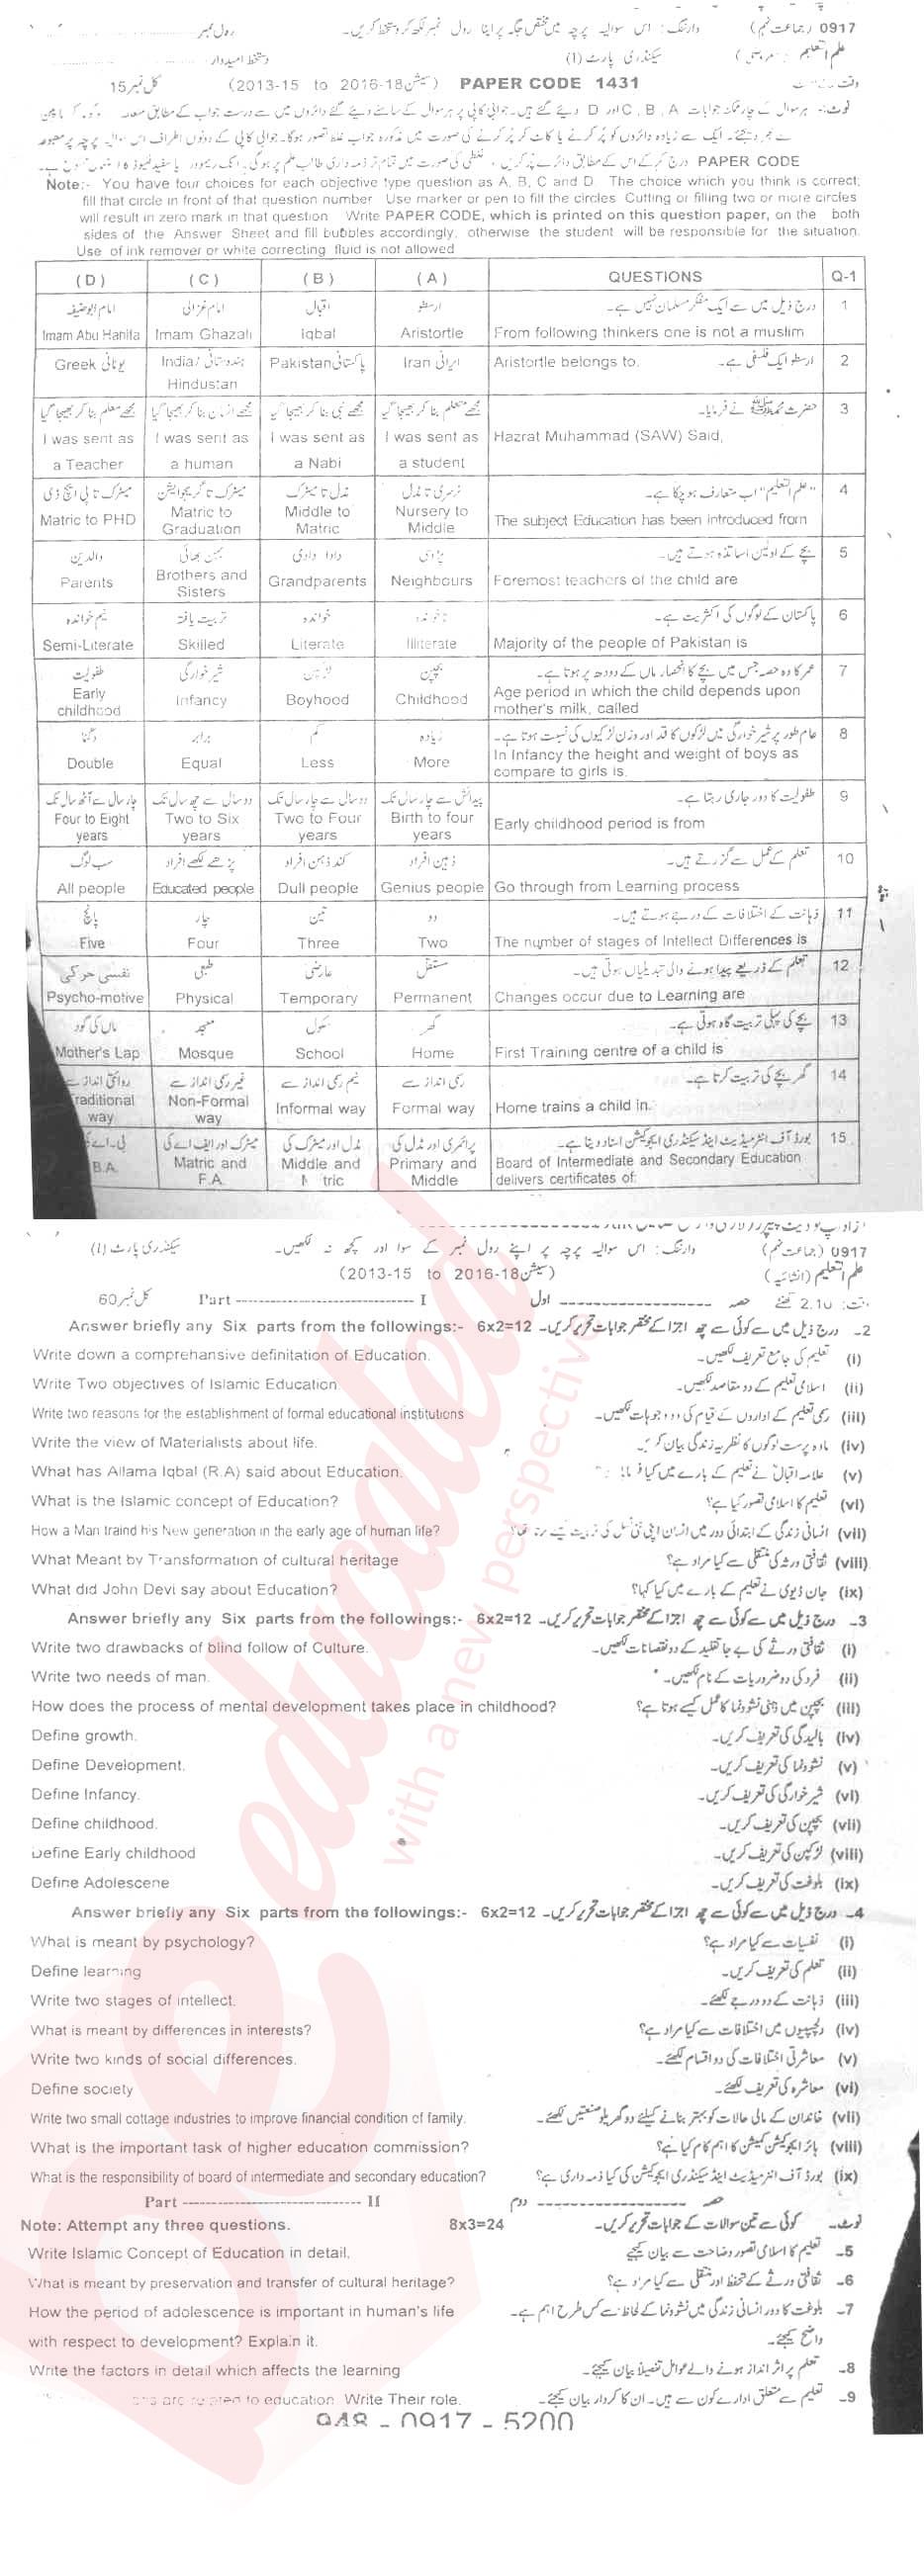 0917 (جماعت نہم) وارننگ: اس سوالیہ پرچہ میں مختص جگہ پر اپنا رول نمبر لکھ کر دستخط کریں۔ رول نمبر
علم التعلیم سیکنڈری پارٹ (I) دستخط امیدوار
PAPER CODE 1431 (سیشن 2013-15 to 2016-18) کل نمبر 15
Note:- You have four choices for each objective type question as A, B, C and D. The choice which you think is correct;
fill that circle in front of that question number Use marker or pen to fill the circles Cutting or filling two or more circles
will result in zero mark in that question Write PAPER CODE, which is printed on this question paper, on the both
sides of the Answer Sheet and fill bubbles accordingly, otherwise the student will be responsible for the situation.
Use of ink remover or white correcting fluid is not allowed
(D) (C) (B) (A) QUESTIONS Q-1
امام ابوحنیفہ امام غزالی اقبال ارسطو درج ذیل میں سے ایک مفکر مسلمان نہیں ہے۔ 1
Imam Abu Hanifa Imam Ghazali Iqbal Aristortle From following thinkers one is not a muslim
Greek یونانی India/ ہندوستانی Pakistan پاکستانی Iran ایرانی Aristortle belongs to. ارسطو ایک فلسفی ہے۔ 2
Hindustan
مجھے معلم بنا کر بھیجا گیا مجھے انسان بنا کر بھیجا گیا مجھے نبی بنا کر بھیجا گیا مجھے متعلم بنا کر بھیجا گیا حضرت محمد ﷺ نے فرمایا۔ 3
I was sent as I was sent as I was sent as I was sent as Hazrat Muhammad (SAW) Said,
a Teacher a human a Nabi a student
میٹرک تا پی ایچ ڈی میٹرک تا گریجوایشن مڈل تا میٹرک نرسری تا مڈل "علم التعلیم" اب متعارف ہو چکا ہے۔ 4
Matric to PHD Matric to Middle to Nursery to The subject Education has been introduced from
Graduation Matric Middle
والدین بہن بھائی دادا دادی پڑوسی بچے کے اولین اساتذہ ہوتے ہیں۔ 5
Parents Brothers and Grandparents Neighbours Foremost teachers of the child are
Sisters
نیم خواندہ تربیت یافتہ خواندہ ناخواندہ پاکستان کے لوگوں کی اکثریت ہے۔ 6
Semi-Literate Skilled Literate Illiterate Majority of the people of Pakistan is
طفولیت شیر خوارگی لڑکپن بچپن عمر کا وہ حصہ جس میں بچے کا انحصار ماں کے دودھ پر ہوتا ہے۔ 7
Early Infancy Boyhood Childhood Age period in which the child depends upon
childhood mother's milk, called
دگنا برابر کم زیادہ عام طور پر شیر خوارگی میں لڑکوں کا قد اور وزن لڑکیوں کی نسبت ہوتا ہے۔ 8
Double Equal Less More In Infancy the height and weight of boys as
compare to girls is.
چار سال سے آٹھ سال تک دو سال سے چھ سال تک دو سال سے چار سال تک پیدائش سے چار سال تک طفولیت کا دور جاری رہتا ہے۔ 9
Four to Eight Two to Six Two to Four Birth to four Early childhood period is from
years years years years
سب لوگ پڑھے لکھے افراد کند ذہن افراد ذہین افراد تعلم کے عمل سے گزرتے ہیں۔ 10
All people Educated people Dull people Genius people Go through from Learning process
پانچ چار تین دو ذہانت کے اختلافات کے درجے ہوتے ہیں۔ 11
Five Four Three Two The number of stages of Intellect Differences is
نفسی حرکی طبعی عارضی مستقل تعلم کے ذریعے پیدا ہونے والی تبدیلیاں ہوتی ہیں۔ 12
Psycho-motive Physical Temporary Permanent Changes occur due to Learning are
ماں کی گود مسجد سکول گھر بچے کی پہلی تربیت گاہ ہوتی ہے۔ 13
Mother's Lap Mosque School Home First Training centre of a child is
روائتی انداز سے غیر رسمی انداز سے نیم رسمی انداز سے رسمی انداز سے گھر بچے کی تربیت کرتا ہے۔ 14
raditional Non-Formal Informal way Formal way Home trains a child in.
way way
بی۔اے کی میٹرک اور ایف اے کی مڈل اور میٹرک کی پرائمری اور مڈل کی بورڈ آف انٹرمیڈیٹ اینڈ سیکنڈری ایجوکیشن اسناد دیتا ہے۔ 15
B.A. Matric and Middle and Primary and Board of Intermediate and Secondary Education
F.A. tric Middle delivers certificates of:
0917 (جماعت نہم) وارننگ: اس سوالیہ پرچہ پر اپنے رول نمبر کے سوا اور کچھ نہ لکھیں۔ سیکنڈری پارٹ (I)
علم التعلیم (انشائیہ) (سیشن 2013-15 to 2016-18)
2.10 گھنٹے حصہ ---- اول Part ---- I کل نمبر 60
2۔ درج ذیل میں سے کوئی سے چھ اجزا کے مختصر جوابات تحریر کریں۔ 6x2=12 Answer briefly any Six parts from the followings:-
Write down a comprehansive definitation of Education. (i) تعلیم کی جامع تعریف لکھیں۔
Write Two objectives of Islamic Education. (ii) اسلامی تعلیم کے دو مقاصد لکھیں۔
Write two reasons for the establishment of formal educational institutions (iii) رسمی تعلیم کے اداروں کے قیام کی دو وجوہات لکھیں۔
Write the view of Materialists about life. (iv) مادہ پرست لوگوں کا نظریہ زندگی بیان کریں۔
What has Allama Iqbal (R.A) said about Education. (v) علامہ اقبال نے تعلیم کے بارے میں کیا فرمایا
What is the Islamic concept of Education? (vi) تعلیم کا اسلامی تصور کیا ہے؟
How a Man traind his New generation in the early age of human life? (vii) انسانی زندگی کے ابتدائی دور میں انسان اپنی نئی نسل کی تربیت کیسے کرتا تھا؟
What Meant by Transformation of cultural heritage (viii) ثقافتی ورثہ کی منتقلی سے کیا مراد ہے؟
What did John Devi say about Education? (ix) جان ڈیوی نے تعلیم کے بارے میں کیا کہا؟
3۔ درج ذیل میں سے کوئی سے چھ اجزا کے مختصر جوابات تحریر کریں۔ 6x2=12 Answer briefly any Six parts from the followings:-
Write two drawbacks of blind follow of Culture. (i) ثقافتی ورثے کی بے جا تقلید کے دو نقصانات لکھیں۔
Write two needs of man. (ii) فرد کی دو ضروریات کے نام لکھیں۔
How does the process of mental development takes place in childhood? (iii) بچپن میں ذہنی نشوونما کا عمل کیسے ہوتا ہے؟
Define growth. (iv) بالیدگی کی تعریف کریں۔
Define Development. (v) نشوونما کی تعریف کریں۔
Define Infancy. (vi) شیر خوارگی کی تعریف کریں۔
Define childhood. (vii) بچپن کی تعریف کریں۔
Define Early childhood (viii) لڑکپن کی تعریف کریں۔
Define Adolescene (ix) بلوغت کی تعریف کریں۔
4۔ درج ذیل میں سے کوئی سے چھ اجزا کے مختصر جوابات تحریر کریں۔ 6x2=12 Answer briefly any Six parts from the followings:-
What is meant by psychology? (i) نفسیات سے کیا مراد ہے؟
Define learning (ii) تعلم کی تعریف کریں۔
Write two stages of intellect. (iii) ذہانت کے دو درجے لکھئے۔
What is meant by differences in interests? (iv) دلچسپیوں میں اختلافات سے کیا مراد ہے؟
Write two kinds of social differences. (v) معاشرتی اختلافات کی دو اقسام لکھئے۔
Define society (vi) معاشرہ کی تعریف لکھئے۔
Write two small cottage industries to improve financial condition of family. (vii) خاندان کے مالی حالات کو بہتر بنانے کیلئے دو گھریلو صنعتیں لکھئے۔
What is the important task of higher education commission? (viii) ہائر ایجوکیشن کمیشن کا اہم کام کیا ہے؟
What is the responsibility of board of intermediate and secondary education? (ix) بورڈ آف انٹرمیڈیٹ اینڈ سیکنڈری ایجوکیشن کی کیا ذمہ داری ہے؟
Part ---- II حصہ ---- دوم
Note: Attempt any three questions. 8x3=24 نوٹ۔ کوئی سے تین سوالات کے جوابات تحریر کریں۔
Write Islamic Concept of Education in detail. 5۔ تعلیم کا اسلامی تصور وضاحت سے بیان کیجئے
What is meant by preservation and transfer of cultural heritage? 6۔ ثقافتی ورثے کے تحفظ اور منتقلی سے کیا مراد ہے؟
How the period of adolescence is important in human's life 7۔ بلوغت کا دور انسانی زندگی میں نشوونما کے لحاظ سے کس طرح اہم ہے۔
with respect to development? Explain it. واضح کیجئے۔
Write the factors in detail which affects the learning 8۔ تعلم پر اثر انداز ہونے والے عوامل تفصیلاً بیان کیجئے۔
are related to education Write Their role. 9۔ تعلیم سے متعلق ادارے کون سے ہیں۔ ان کا کردار بیان کیجئے۔
948 - 0917 - 5200
be educated
with a new perspective